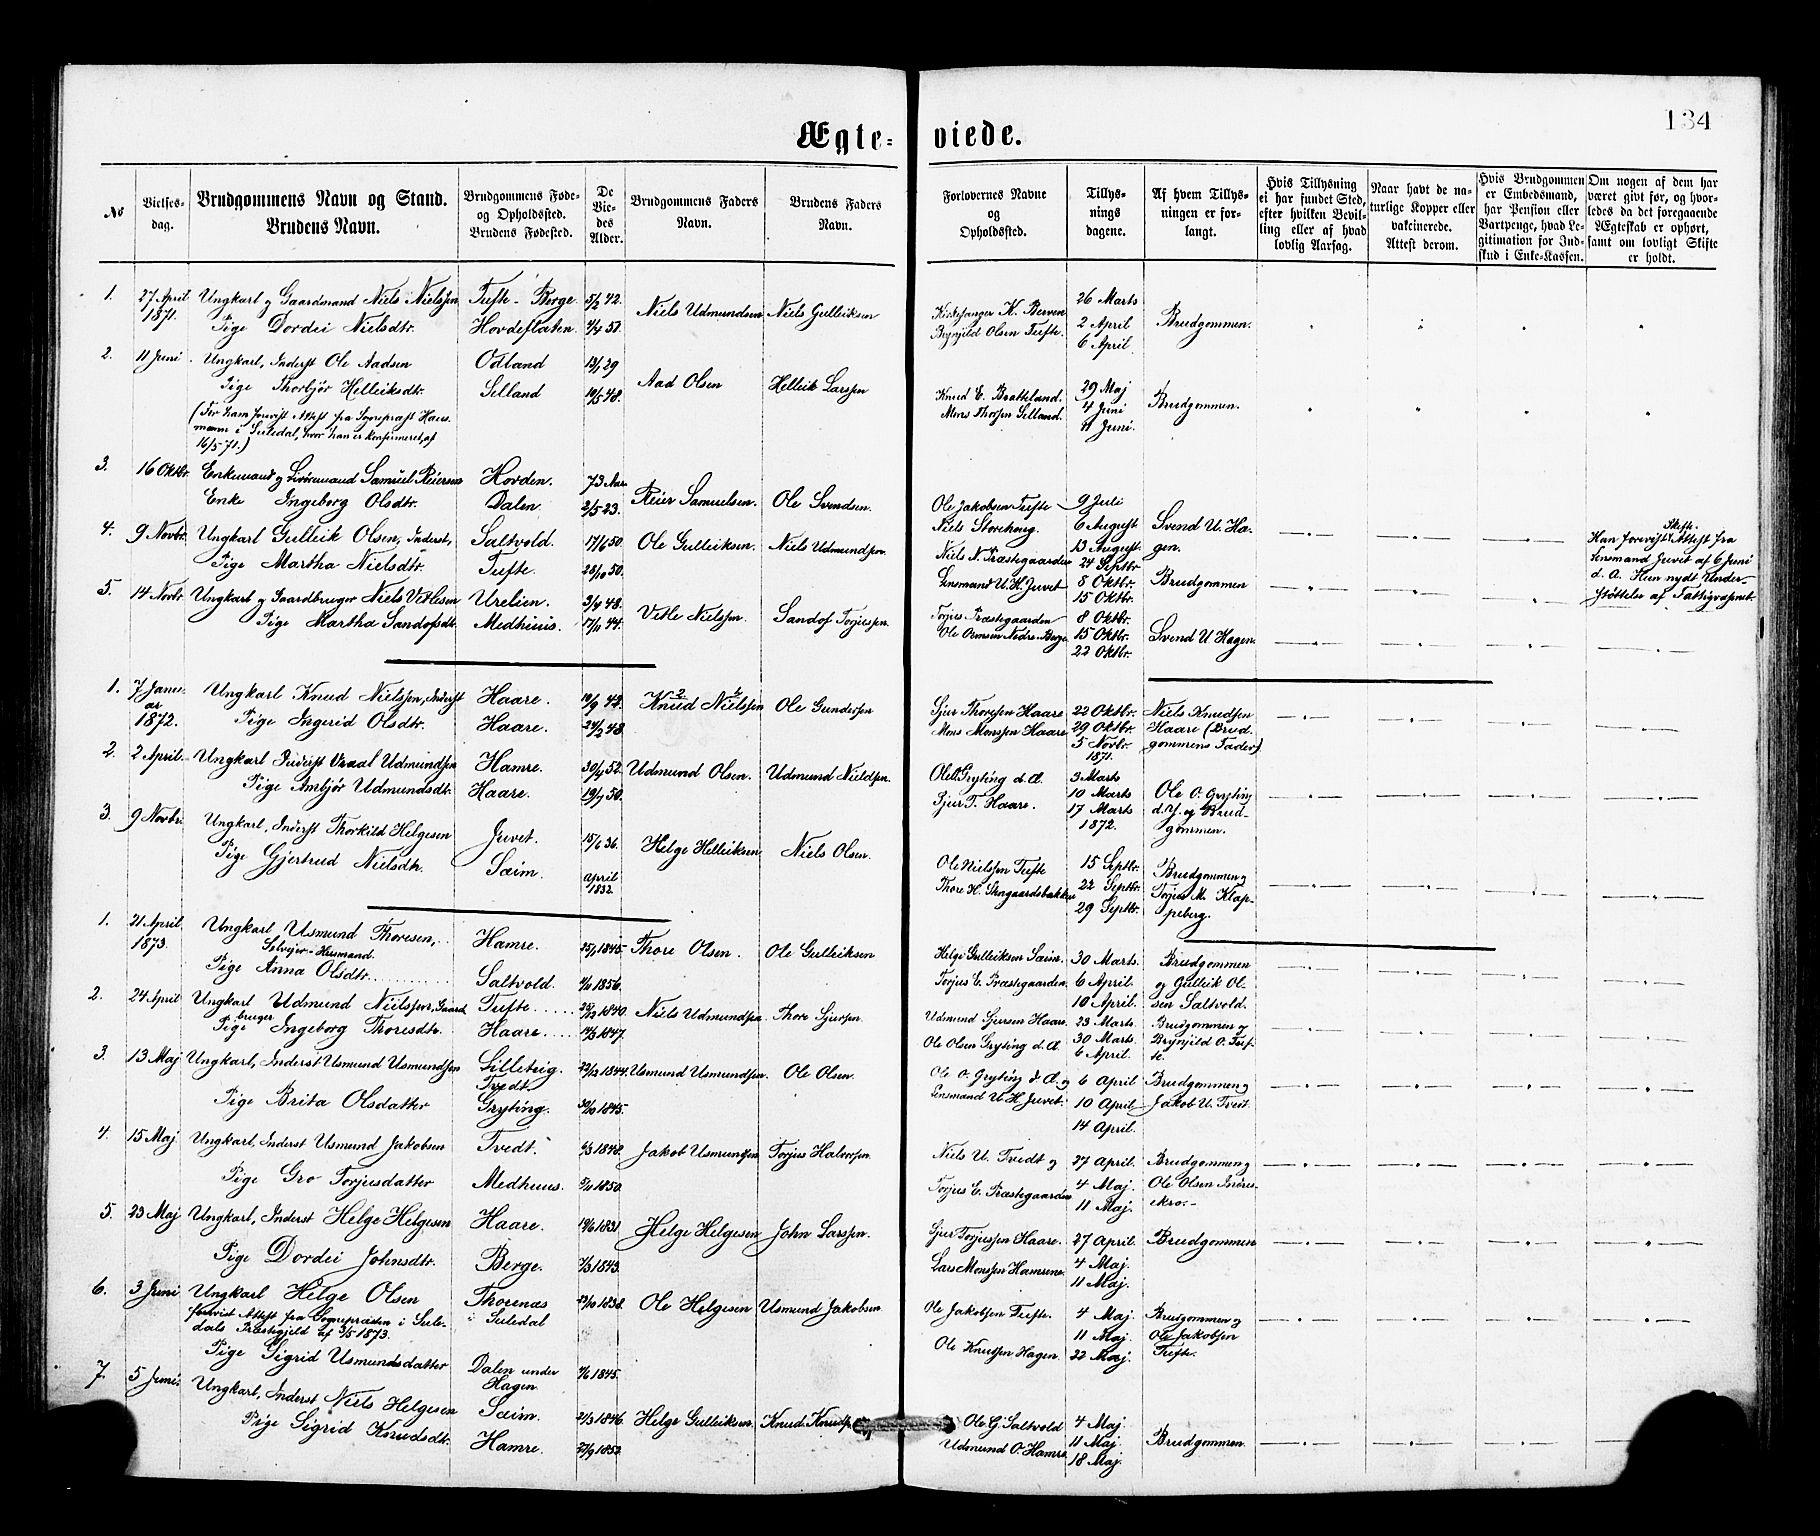 134
Ægte-viede.
No
Vielsesdag.
Brudgommens Navn og Stand.
Brudens Navn.
Brudgommens Føde-
og Opholdssted.
Brudens Fødested.
De
Vie-
des
Alder.
Brudgommens Faders
Navn.
Brudens Faders
Navn.
Forlovernes Navne
og
Opholdssted.
Tillys-
nings
dagene.
Af hvem Tillys-
ningen er for-
langt.
Hvis Tillysning
ei har fundet Sted,
efter hvilken Bevil-
ling eller af hvad
lovlig Aarsag.
Naar havt de na-
turlige Kopper eller
vakcinerede.
Attest derom.
Hvis Brudgommen
er Embedsmand,
har Pension eller
Vartpenge, hvad Le-
gitimation for Ind-
skud i Enke-Kassen.
Om nogen af dem har
været givt før, og hvor-
ledes da det foregaaende
Ægteskab er ophørt,
samt om lovligt Skifte
er holdt.
1. 27 April Ungkarl og Gaardmand Niels Nielssen Tufte - Berge. 5/2 42. Niels Udmundsen Niels Gulleiksen Kirkesanger K. Berven 26 Marts
1871. Pige Dordei Nielsdtr. Hovdeflaten. 7/4 51. Brynjild Olsen Tufte. 2 April Brudgommen.
6 April.
2. 11 Juni Ungkarl, Inderst Ole Aadsen Odland 13/1 29 Aad Olsen Helleik Larssen Knud E. Bratteland. 29 Maj Brudgommen.
Pige Thorbjør Helleiksdtr. Lilland 10/5 48. Mons Thorsen Lilland. 4 Juni
(For ham forevist Attest fra Sognepræst Haus- 11 Juni.
mann i Suledal, hvor han er konfirmeret, af
16/5-71.)
3. 16 Oktbr. Enkemand og Livøremand Samuel Reiersen Hovden. 73 Aar Reier Samuelsen. Ole Svendsen. Ole Jakobsen Tufte 9 Juli Svend U. Ha-
Enke Ingeborg Olsdtr. Dalen. 2/5 23. Niels Storehaug. 6 August. gen.
13 August.
4. 9 Novbr. Ungkarl Gulleik Olsen, Inderst, Saltvold. 17/6 50. Ole Gulleiksen. Niels Udmundsen. Niels N. Præstegaarden 24 Septbr. Brudgommen
Pige Martha Nielsdtr. Tufte. 28/10 50. Lensmand U. H. Juvet 8 Oktbr.
15 Oktbr.
Skifte.
Han forevist Attest fra
Lensmand Juvet af 6 Juni
d. A. Hun nydt Under-
støttelse af Fattigvæsnet.
5. 14 Novbr. Ungkarl og Gaardbruger Niels Vetlesen Urelien. 3/4 48. Vetle Nielssen. Sandof Torjussen. Torjus Præstegaarden 8 Oktbr. Svend U Hagen.
Pige Martha Sandofsdtr. Medhuus. 17/11 44. Ole Ormsen Nedre-Berge 15 Oktbr.
22 Oktbr.
1. 7 Janu- Ungkarl Knud Nielssen, Inderst Haare. 10/9 42. Knud Nielssen Ole Gundersen Sjur Thoresen Haare 22 Oktbr. Niels Knudsen
ar Mons Monssen Haare 29 Oktbr. Haare (Brud-
1872. Pige Ingerid Olsdtr. Haare. 24/2 48. 5 Novbr. gommens Fader)
1871.
2. 2 April. Ungkarl Inderst Vraal Udmundsen Hamre. 30/4 52. Udmund Olsen. Udmund Nieldsen. Ole O Gryting d. Æ. 3 Marts Ole O. Gryting
Pige Ambjør Udmundsdtr. Haare. 19/7 50. Sjur T. Haare. 10 Marts d. Y. og Brud-
17 Marts gommen.
1872.
3. 9 Novbr. Ungkarl, Inderst Thorkild Helgesen Juvet. 15/6 36. Helge Helleiksen Niels Olsen. Ole Nielssen Tufte 15 Septbr. Brudgommen og
Pige Gjertrud Nielsdtr. Saim. April Thore H. Stengaardsbakken 22 Septbr. Torjus M. Klap-
1832. 29 Septbr. peberg.
1. 21 April Ungkarl Usmund Thoresen, Hamre. 25/1 1845. Thore Olsen. Ole Gulleiksen Helge Gulleiksen Saim. 30 Marts. Brudgommen
1873. Selvejer-Husmand. Torjus E. Præstegaarden. 6 April. og Gulleik Ol-
Pige Anna Olsdtr. Saltvold. 4/11 1856. 10 April. sen Saltvold.
2. 24 April Ungkarl Udmund Nielssen, Gaard- Tufte. 25/12 1840. Niels Udmundsen Thore Sjursen. Udmund Sjursen Haare. 23 Marts. Brudgommen og
bruger Ole Olsen Gryting d. Æ. 30 Marts. Brynjild O. Tuf-
Pige Ingeborg Thoresdtr. Haare. 14/3 1847. 6 April. te.
3. 13 Maj Ungkarl, Inderst Usmund Usmundsen Lilleteig. 22/12 1844. Usmund Usmundsen. Ole Olsen. Ole O. Gryting d. Æ. og 6 April Brudgommen og
Tvedt. Lensmand U. H. Juvet. 10 April Jakob U. Tvedt.
Pige Brita Olsdatter Gryting. 30/10 1845. 14 April.
4. 15 Maj Ungkarl, Inderst Usmund Jakobsen Tvedt. 6/3 1848. Jakob Usmundsen Torjus Halvorsen. Niels U. Tvedt og 27 April. Brudgommen og
Pige Gro Torjusdatter Medhuus. 5/11 1850. Torjus E. Præstegaarden 4 Maj. Ole Olsen Indres-
11 Maj. ekro.-
5. 23 Maj Ungkarl, Inderst Helge Helgesen Haare. 19/6 1831. Helge Helgesen John Larssen. Sjur Torjussen Haare. 27 April. Brudgommen
Pige Dordei Johnsdtr. Berge. 7/3 1843. Lars Monssen Hamrene. 4 Maj.
11 Maj.
6. 3 Juni Ungkarl Helge Olsen Thorenæs 23/10 1838. Ole Helgesen Usmund Jakobsen. Ole Jakobsen Tufte. 4 Maj. Brudgommen og
forevist Attest fra Sognepræsten i Sule- i Suledal 11 Maj. Ole Jakobsen
dals Præstegjeld af 3/5 1873. Ole Knutsen Hagen. 22 Maj. Tufte.
Pige Sigrid Usmundsdatter Dalen under 4/6 1845.
Hagen
7. 5 Juni. Ungkarl, Inderst Niels Helgesen Saim. 21/3 1846. Helge Gulleiksen. Knud Knuds Ole G. Saltvold 4 Maj.
Pige Sigrid Knudsdtr. Hamre. 27/9 1852. Udmund O. Hamre 11 Maj. Brudgommen.
18 Maj.